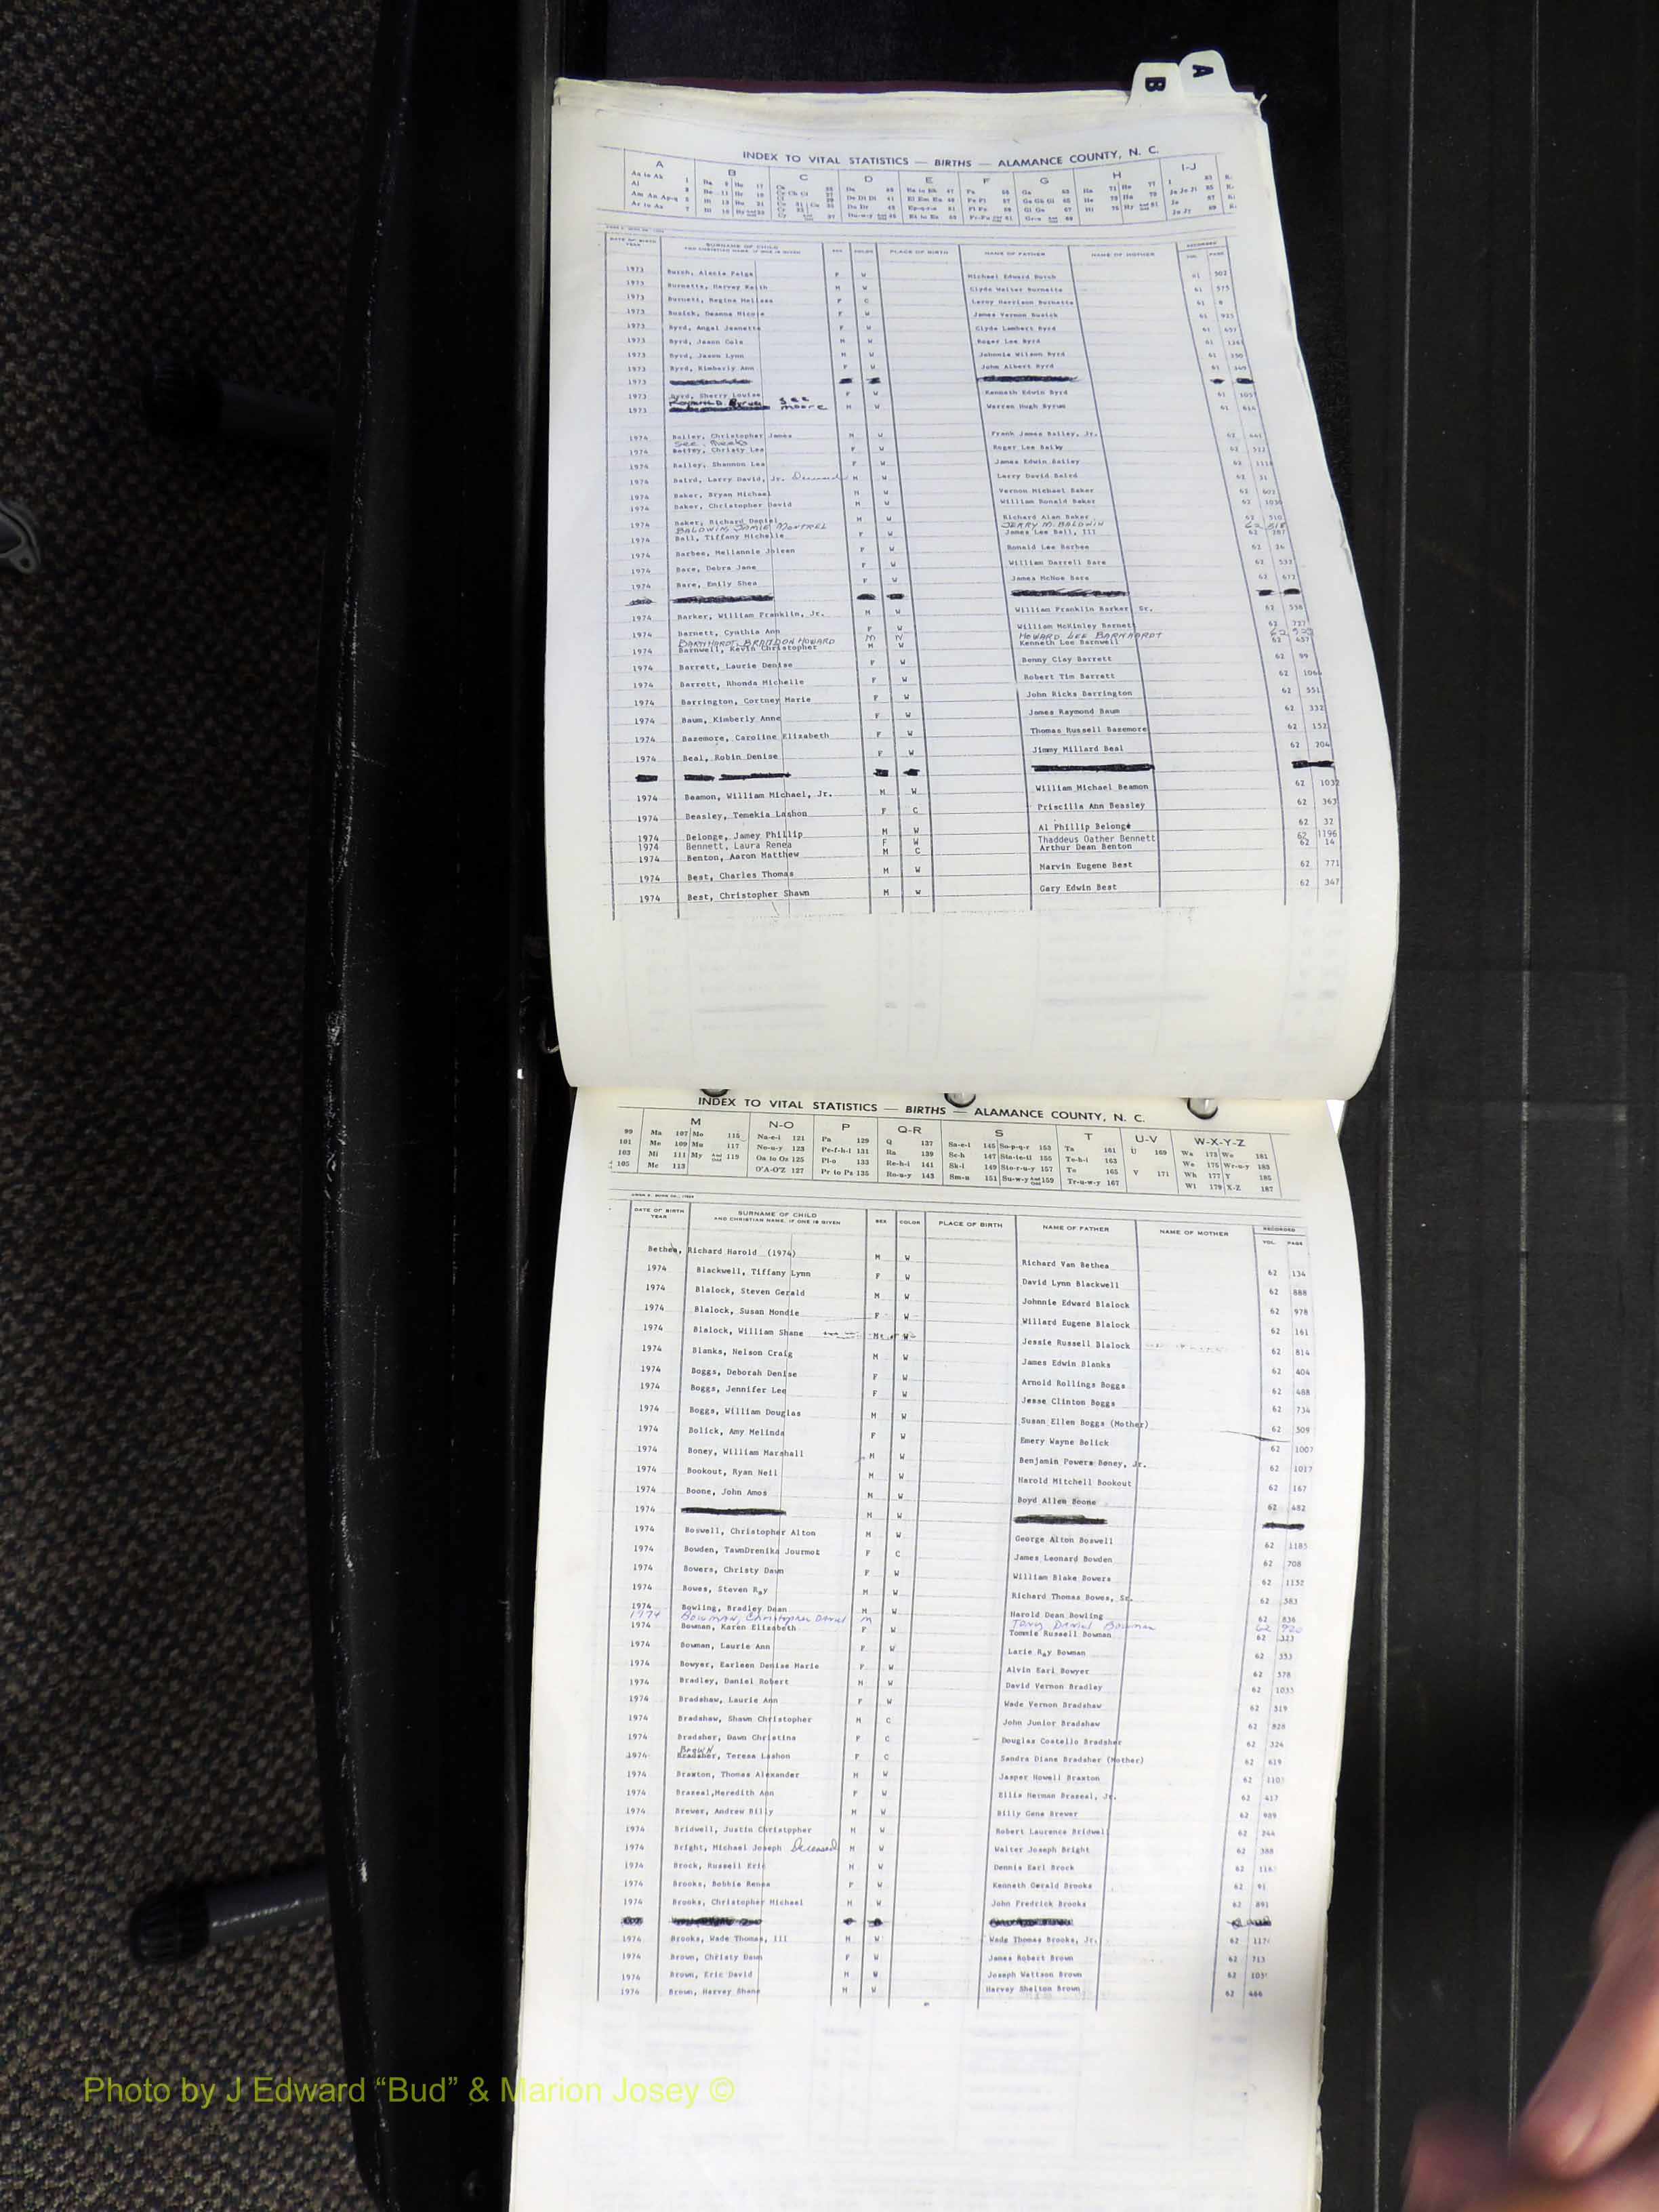 A
B
INDEX TO VITAL STATISTICS — BIRTHS — ALAMANCE COUNTY, N. C.
A B C D E F G H I-J
DATE OF BIRTH YEAR SURNAME OF CHILD AND CHRISTIAN NAME, IF ONE IS GIVEN SEX COLOR PLACE OF BIRTH NAME OF FATHER NAME OF MOTHER RECORDED VOL. PAGE
1973 Burch, Alexia Paige F W Michael Edward Burch 61 502
1973 Burnette, Harvey Keith M W Clyde Walter Burnette 61 575
1973 Burnett, Regina Melissa F C Leroy Harrison Burnette 61
1973 Busick, Deanna Nicole F W James Vernon Busick 61 925
1973 Byrd, Angel Jeanette F W Clyde Lambert Byrd 61 457
1973 Byrd, Jason Cole M W Roger Lee Byrd 61
1973 Byrd, Jason Lynn M W Johnnie Wilson Byrd 61 250
1973 Byrd, Kimberly Ann F W John Albert Byrd 61
1973
1973 Byrd, Sherry Louise F W Kenneth Edwin Byrd 61
1973 See Moore M W Warren Hugh Byrum 61 614
1974 Bailey, Christopher James M W Frank James Bailey, Jr. 62
See
1974 Bailey, Christy Lee F W Roger Lee 62 512
1974 Bailey, Shannon Lea F W James Edwin Bailey 62 1118
1974 Baird, Larry David, Jr. Deceased M W Larry David Baird 62 31
1974 Baker, Bryan Michael M W Vernon Michael Baker 62 602
1974 Baker, Christopher David M W William Ronald Baker 62
1974 Baker, Richard Daniel M W Richard Alan Baker 62 510
BALDWIN, JAMIE MONTREL JERRY M. BALDWIN 62 818
1974 Ball, Tiffany Michelle F W James Lee Ball, III 62 287
1974 Barbee, Mellannie Joleen F W Ronald Lee Barbee 62 26
1974 Bare, Debra Jane F W William Darrell Bare 62 532
1974 Bare, Emily Shea F W James McNoe Bare 62 672
1974 Barker, William Franklin, Jr. M W William Franklin Barker, Sr. 62 538
1974 Barnett, Cynthia Ann F W William McKinley Barnett 62 727
BARNHARDT, BRANDON HOWARD M HOWARD LEE BARNHARDT 62
1974 Barnwell, Kevin Christopher M W Kenneth Lee Barnwell 62 457
1974 Barrett, Laurie Denise F W Benny Clay Barrett 62 99
1974 Barrett, Rhonda Michelle F W Robert Tim Barrett 62 1066
1974 Barrington, Cortney Marie F W John Ricks Barrington 62 551
1974 Baum, Kimberly Anne F W James Raymond Baum 62 332
1974 Bazemore, Caroline Elizabeth F W Thomas Russell Bazemore 62 152
1974 Beal, Robin Denise F W Jimmy Millard Beal 62 204
1974 Beamon, William Michael, Jr. M W William Michael Beamon 62 1032
1974 Beasley, Temekia Lashon F C Priscilla Ann Beasley 62 363
1974 Belonge, Jamey Phillip M W Al Phillip Belonge 62 32
1974 Bennett, Laura Renea F W Thaddeus Oather Bennett 62 1196
1974 Benton, Aaron Matthew M C Arthur Dean Benton 62 14
1974 Best, Charles Thomas M W Marvin Eugene Best 62 771
1974 Best, Christopher Shawn M W Gary Edwin Best 62 347
INDEX TO VITAL STATISTICS — BIRTHS — ALAMANCE COUNTY, N. C.
M N-O P Q-R S T U-V W-X-Y-Z
99 Ma 107 Mo 115 Na-e-i 121 Pa 129 Q 137 Sa-e-i 145 So-p-q-r 153 Ta 161 U 169 Wa 173 Wo 181
101 Me 109 Mu 117 No-u-y 123 Pe-f-h-i 131 Ra 139 Sc-h 147 Sta-te-ti 155 Te-h-i 163 We 175 Wr-u-y 183
103 Mi 111 My And Odd 119 Oa to Oz 125 Pl-o 133 Re-h-i 141 Sk-l 149 Sto-r-u-y 157 To 165 V 171 Wh 177 Y 185
105 Mc 113 O'A-O'Z 127 Pr to Ps 135 Ro-u-y 143 Sm-n 151 Su-w-y And Odd 159 Tr-u-w-y 167 Wi 179 X-Z 187
DATE OF BIRTH YEAR SURNAME OF CHILD AND CHRISTIAN NAME, IF ONE IS GIVEN SEX COLOR PLACE OF BIRTH NAME OF FATHER NAME OF MOTHER RECORDED VOL. PAGE
Bethea, Richard Harold (1974) M W Richard Van Bethea 62 134
1974 Blackwell, Tiffany Lynn F W David Lynn Blackwell 62 888
1974 Blalock, Steven Gerald M W Johnnie Edward Blalock 62 978
1974 Blalock, Susan Mondie F W Willard Eugene Blalock 62 161
1974 Blalock, William Shane M W Jessie Russell Blalock 62 814
1974 Blanks, Nelson Craig M W James Edwin Blanks 62 404
1974 Boggs, Deborah Denise F W Arnold Rollings Boggs 62 488
1974 Boggs, Jennifer Lee F W Jesse Clinton Boggs 62 734
1974 Boggs, William Douglas M W Susan Ellen Boggs (Mother) 62 509
1974 Bolick, Amy Melinda F W Emery Wayne Bolick 62 1007
1974 Boney, William Marshall M W Benjamin Powers Boney, Jr. 62 1017
1974 Bookout, Ryan Neil M W Harold Mitchell Bookout 62 167
1974 Boone, John Amos M W Boyd Allen Boone 62 482
1974 M W
1974 Boswell, Christopher Alton M W George Alton Boswell 62 1185
1974 Bowden, TawnDrenika Jourmot F C James Leonard Bowden 62 708
1974 Bowers, Christy Dawn F W William Blake Bowers 62 1152
1974 Bowes, Steven Ray M W Richard Thomas Bowes, Sr. 62 583
1974 Bowling, Bradley Dean M W Harold Dean Bowling 62 836
1974 Bowman, Christopher Daniel M Tony Daniel Bowman 62 920
1974 Bowman, Karen Elizabeth F W Tommie Russell Bowman 62 323
1974 Bowman, Laurie Ann F W Latie Ray Bowman 62 353
1974 Bowyer, Earleen Denise Marie F W Alvin Earl Bowyer 62 578
1974 Bradley, Daniel Robert M W David Vernon Bradley 62 1035
1974 Bradshaw, Laurie Ann F W Wade Vernon Bradshaw 62 319
1974 Bradshaw, Shawn Christopher M C John Junior Bradshaw 62 828
1974 Bradsher, Dawn Christina F C Douglas Costello Bradsher 62 324
Brown
1974 Bradsher, Teresa Lashon F C Sandra Diane Bradsher (Mother) 62 619
1974 Braxton, Thomas Alexander M W Jasper Howell Braxton 62 110
1974 Brazeal, Meredith Ann F W Ellis Herman Brazeal, Jr. 62 417
1974 Brewer, Andrew Billy M W Billy Gene Brewer 62 989
1974 Bridwell, Justin Christopher M W Robert Laurence Bridwell 62 244
1974 Bright, Michael Joseph Deceased M W Walter Joseph Bright 62 388
1974 Brock, Russell Eric M W Dennis Earl Brock 62 116
1974 Brooks, Bobbie Renea F W Kenneth Gerald Brooks 62 91
1974 Brooks, Christopher Michael M W John Fredrick Brooks 62 891
1974 Brooks, Wade Thomas, III M W Wade Thomas Brooks, Jr. 62 117
1974 Brown, Christy Dawn F W James Robert Brown 62 713
1974 Brown, Eric David M W Joseph Wattson Brown 62 103
1974 Brown, Harvey Shane M W Harvey Shelton Brown 62 466
Photo by J Edward “Bud” & Marion Josey ©